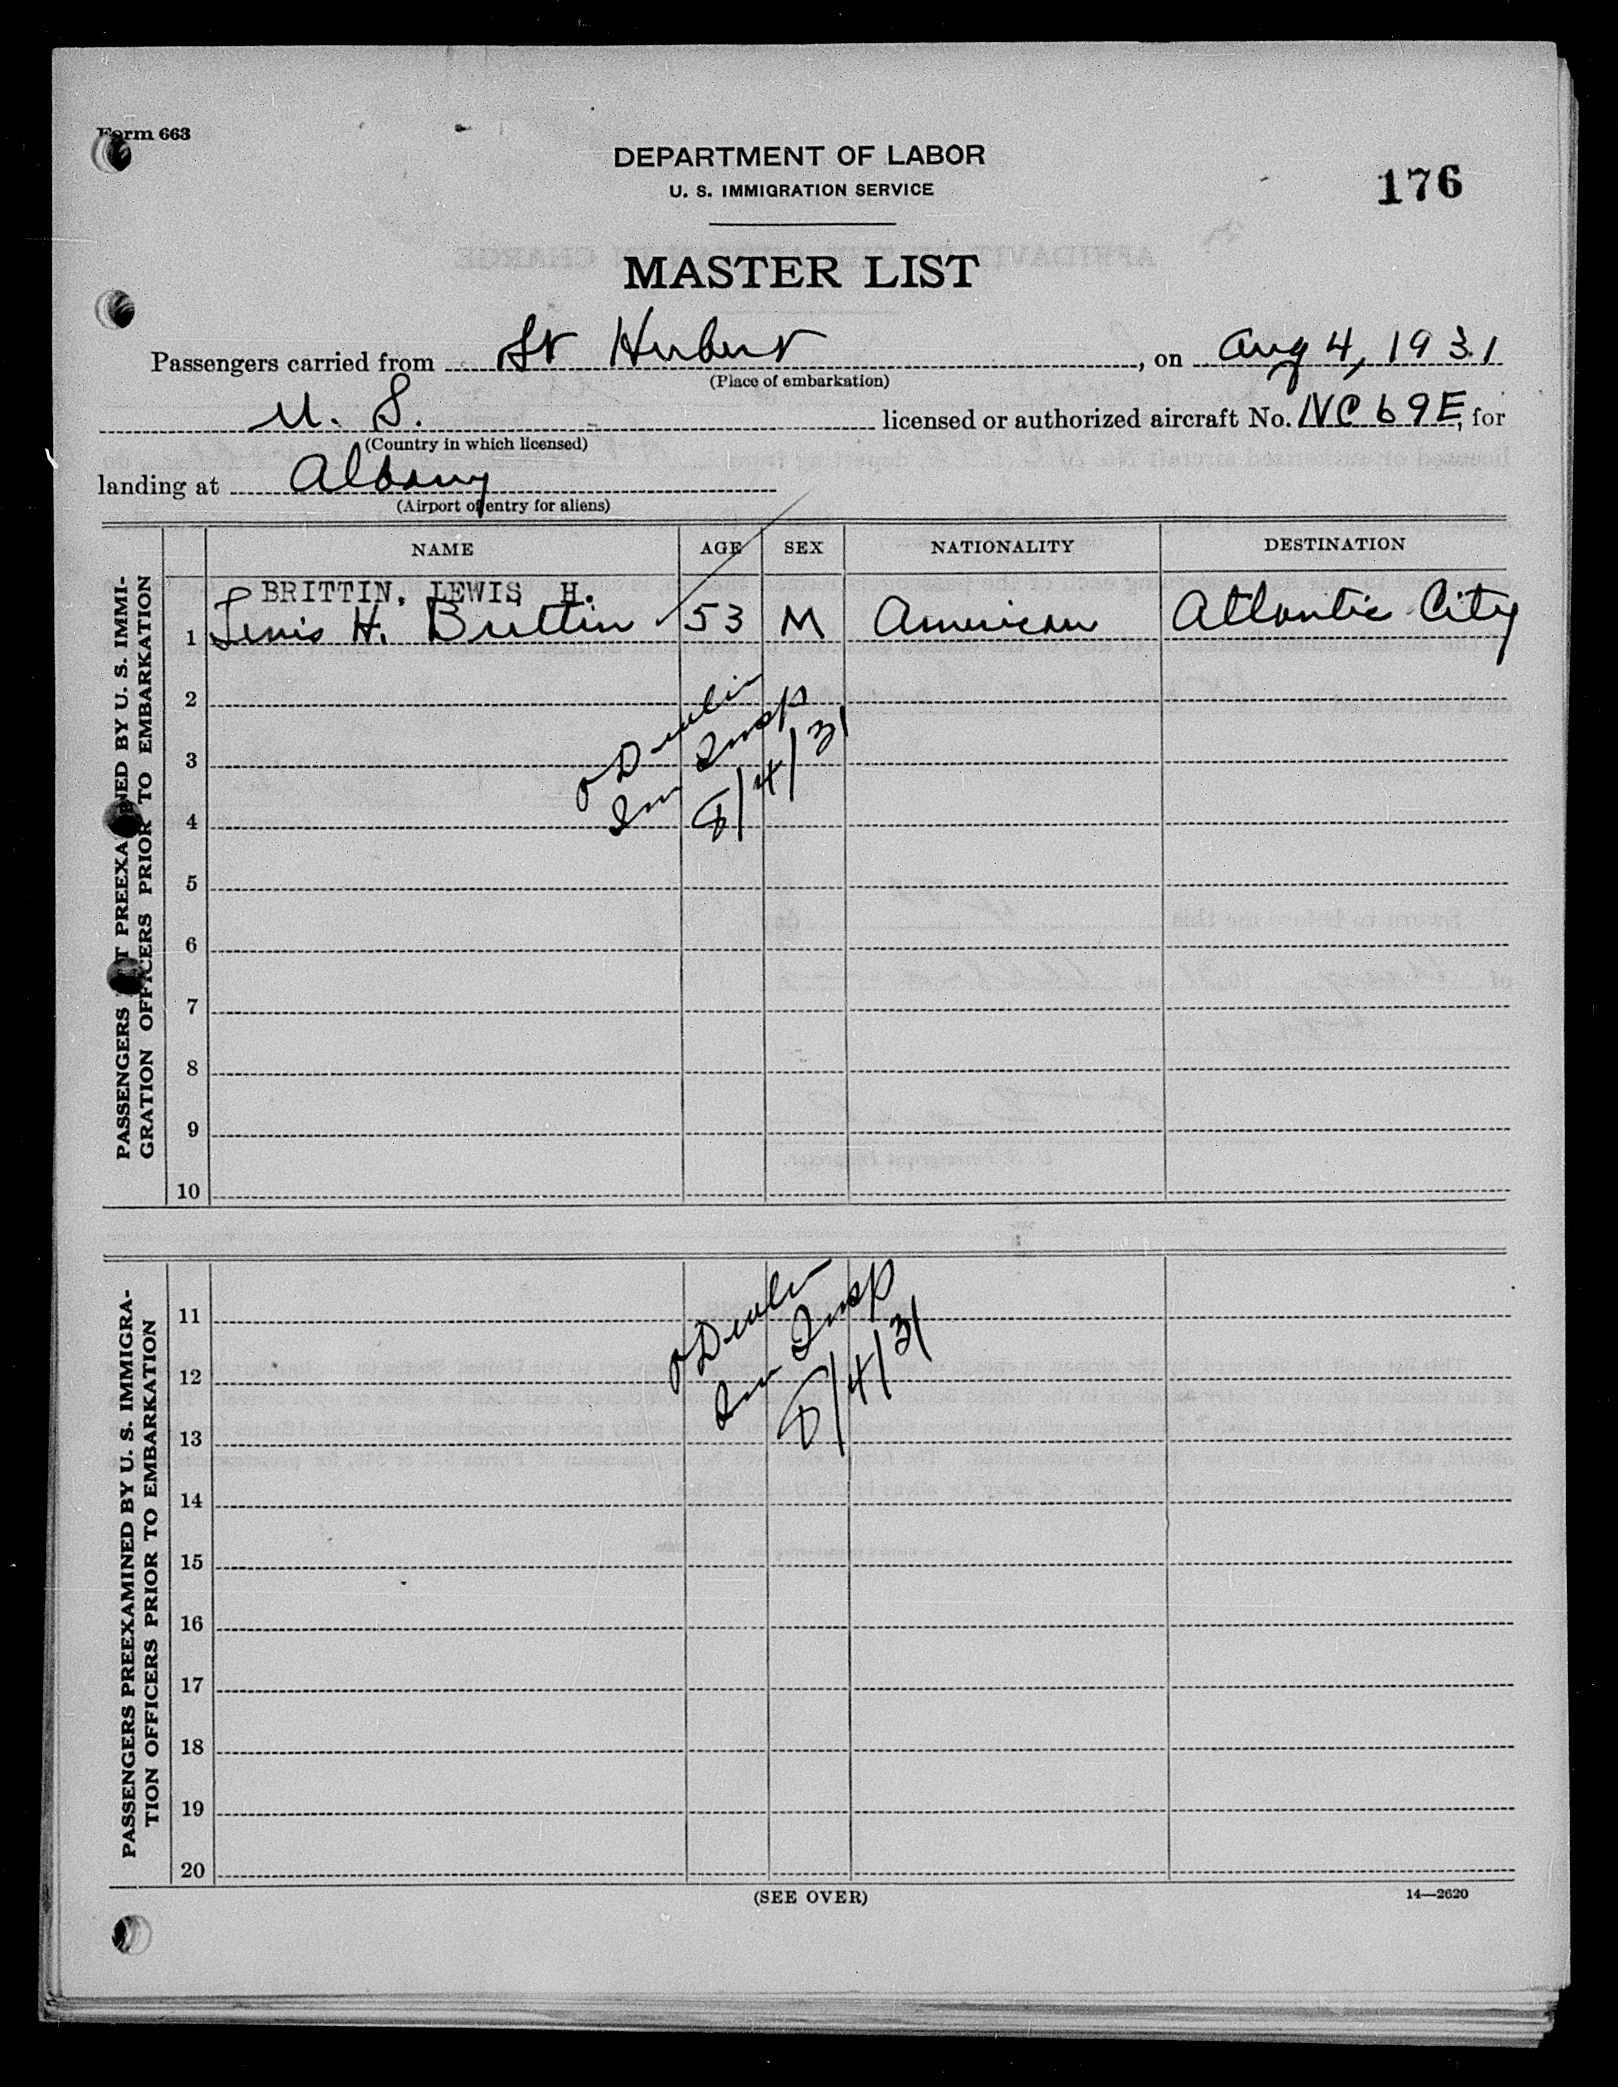 Form 663
DEPARTMENT OF LABOR
U. S. IMMIGRATION SERVICE
176
MASTER LIST
Passengers carried from St Hubert, on Aug 4, 1931
(Place of embarkation)
U. S. licensed or authorized aircraft No. NC 69E, for
(Country in which licensed)
landing at Albany
(Airport of entry for aliens)
NAME AGE SEX NATIONALITY DESTINATION
PASSENGERS NOT PREEXAMINED BY U. S. IMMI-
GRATION OFFICERS PRIOR TO EMBARKATION
BRITTIN, LEWIS H.
1 Lewis H. Brittin 53 M American Atlantic City
2
3
4
Im Insp
8/4/31
5
6
7
8
9
10
PASSENGERS PREEXAMINED BY U. S. IMMIGRA-
TION OFFICERS PRIOR TO EMBARKATION
11
12
13
Im Insp
8/4/31
14
15
16
17
18
19
20
(SEE OVER)
14—2620